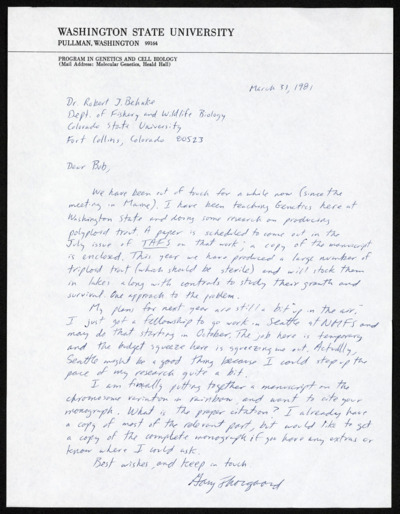 WASHINGTON STATE UNIVERSITY
PULLMAN, WASHINGTON 99164
PROGRAM IN GENETICS AND CELL BIOLOGY
(Mail Address: Molecular Genetics, Heald Hall)
March 31, 1981
Dr. Robert J. Behnke
Dept. of Fishery and Wildlife Biology
Colorado State University
Fort Collins, Colorado 80523
Dear Bob,
We have been out of touch for a while now (since the
meeting in Maine). I have been teaching Genetics here at
Washington State and doing some research on producing
polyploid trout. A paper is scheduled to come out in the
July issue of TAFS on that work; a copy of the manuscript
is enclosed. This year we have produced a large number of
triploid trout (which should be sterile) and will stock them
in lakes along with controls to study their growth and
survival. One approach to the problem.
My plans for next year are still a bit "up in the air."
I just got a fellowship to go work in Seattle at NMFS and
may do that starting in October. The job here is temporary
and the budget squeeze here is squeezing me out. Actually,
Seattle might be a good thing because I could step up the
pace of my research quite a bit.
I am finally putting together a manuscript on the
chromosome variation in rainbow, and want to cite your
monograph. What is the proper citation? I already have
a copy of most of the relevant part, but would like to get
a copy of the complete monograph if you have any extras or
know where I could ask.
Best wishes, and keep in touch.
Gary Thorgaard